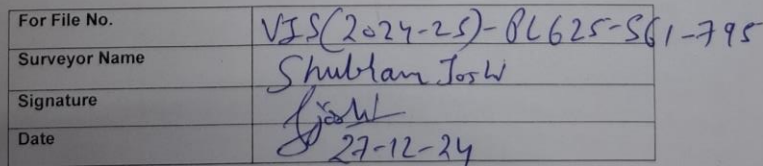 For File No. VIS(2024-25)-PL625-561-795
Surveyor Name Shubham Joshi
Signature Sjoshi
Date 27-12-24